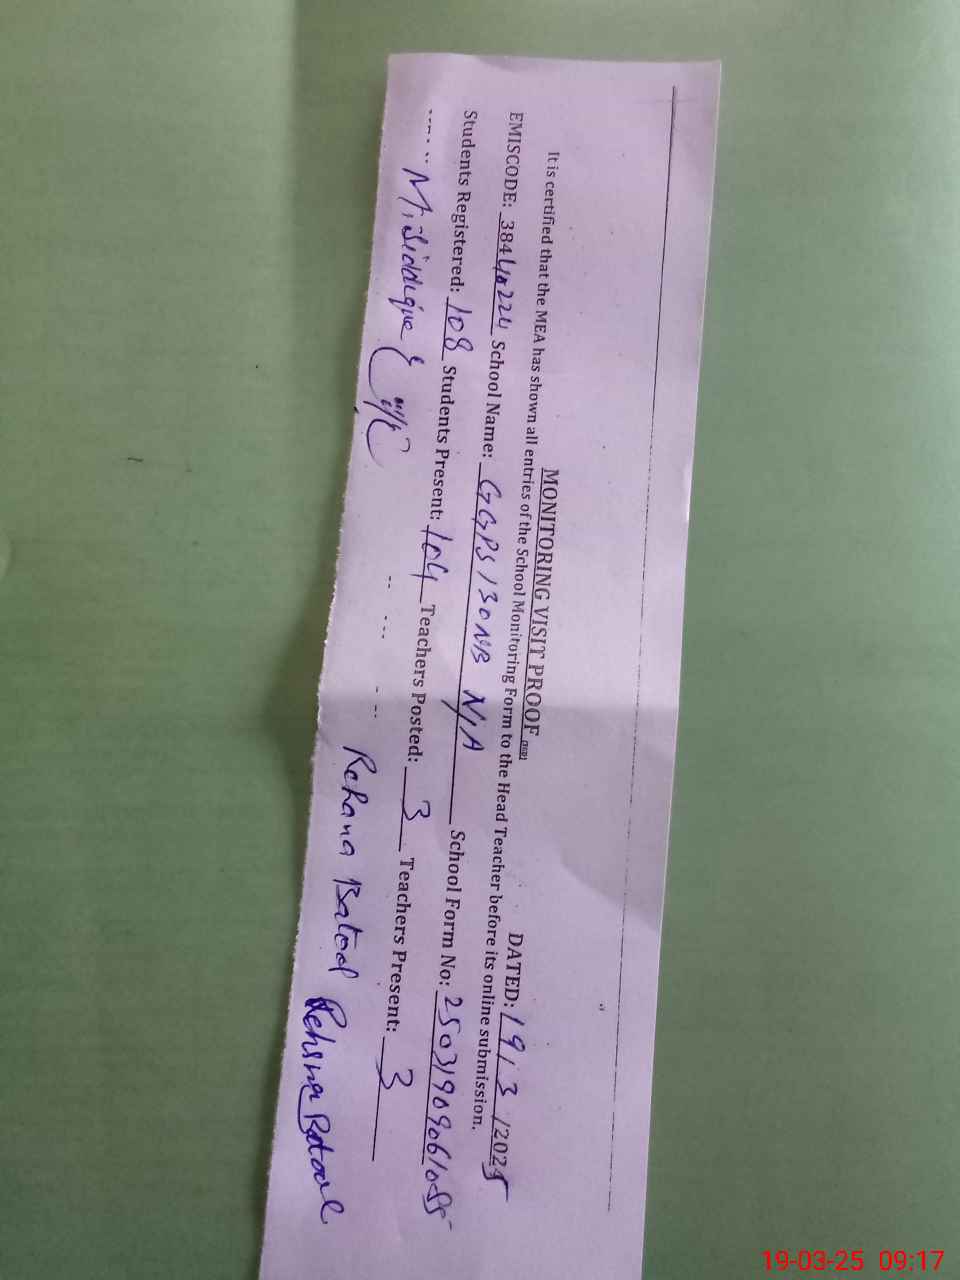 MONITORING VISIT PROOF DATED: 19/3/2025
It is certified that the MEA has shown all entries of the School Monitoring Form to the Head Teacher before its online submission.
EMISCODE: 38440224 School Name: GGPS 130 NB N/A School Form No:
Students Registered: 108 Students Present: 104 Teachers Posted: 3 Teachers Present: 3
M. Siddique Rehana Batool Rehana Batool
19-03-25 09:17